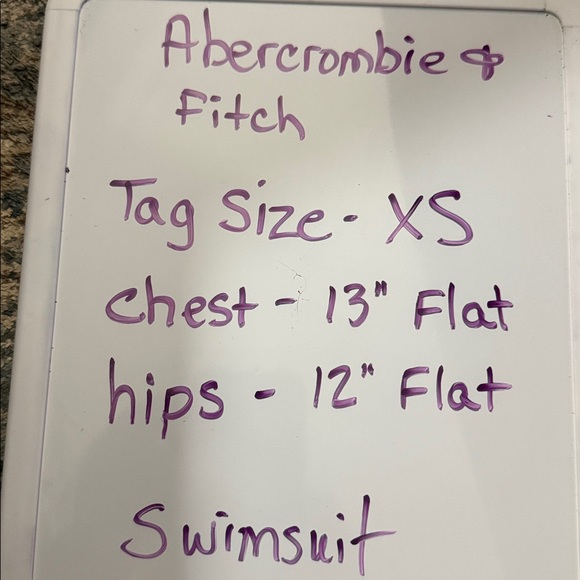 Abercrombie &
Fitch
Tag Size - XS
chest - 13" Flat
hips - 12" Flat
Swimsuit